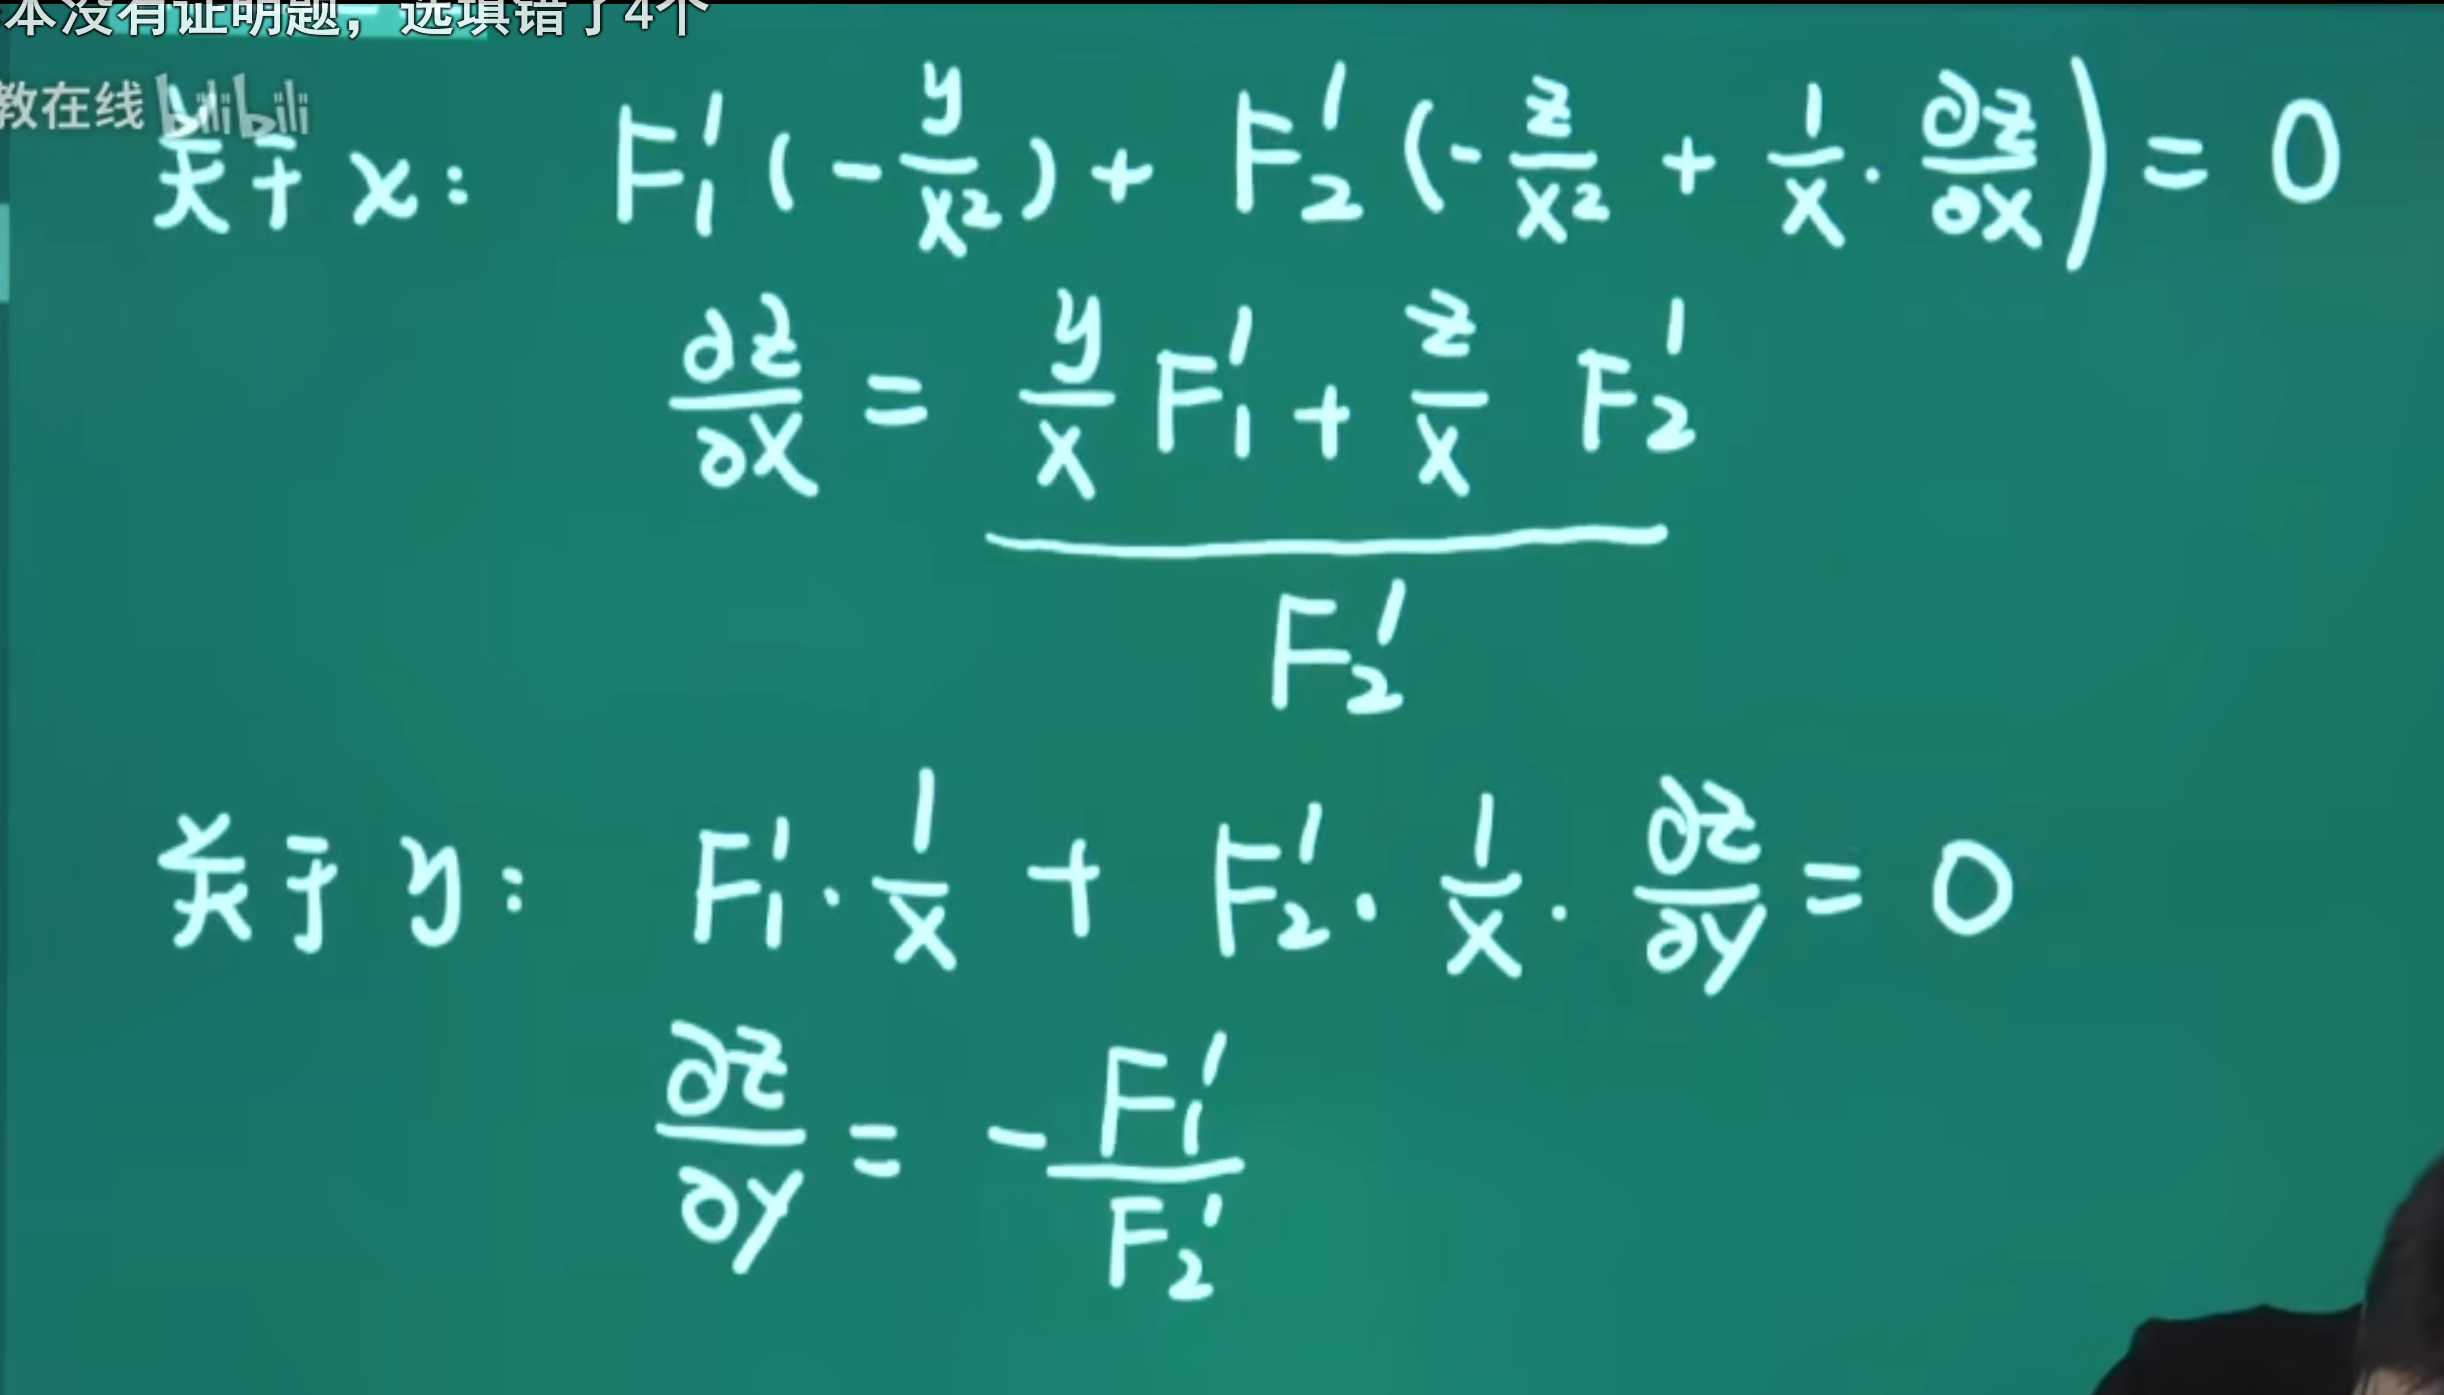 本没有证明题，选填错了4个
教在线 bilibili
关于 x: F₁′(-y/x²) + F₂′(-z/x² + 1/x · ∂z/∂x) = 0
∂z/∂x = (y/x F₁′ + z/x F₂′) / F₂′
关于 y: F₁′ · 1/x + F₂′ · 1/x · ∂z/∂y = 0
∂z/∂y = - F₁′/F₂′